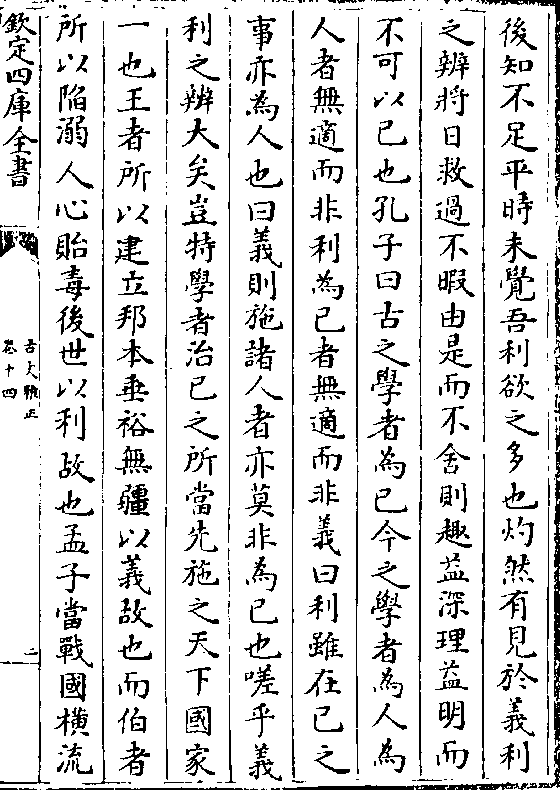 後知不足平時未覺吾利欲之多也灼然有見於義利
之辨將日救過不暇由是而不舍則趣益深理益明而
不可以已也孔子曰古之學者為已今之學者為人為
人者無適而非利為已者無適而非義曰利雖在已之
事亦為人也曰義則施諸人者亦莫非為已也嗟乎義
利之辨大矣豈特學者治已之所當先施之天下國家
一也王者所以建立邦本垂裕無疆以義故也而伯者
所以陷溺人心貽毒後世以利故也孟子當戰國橫流
欽定四庫全書
古文雅正
卷十四
二